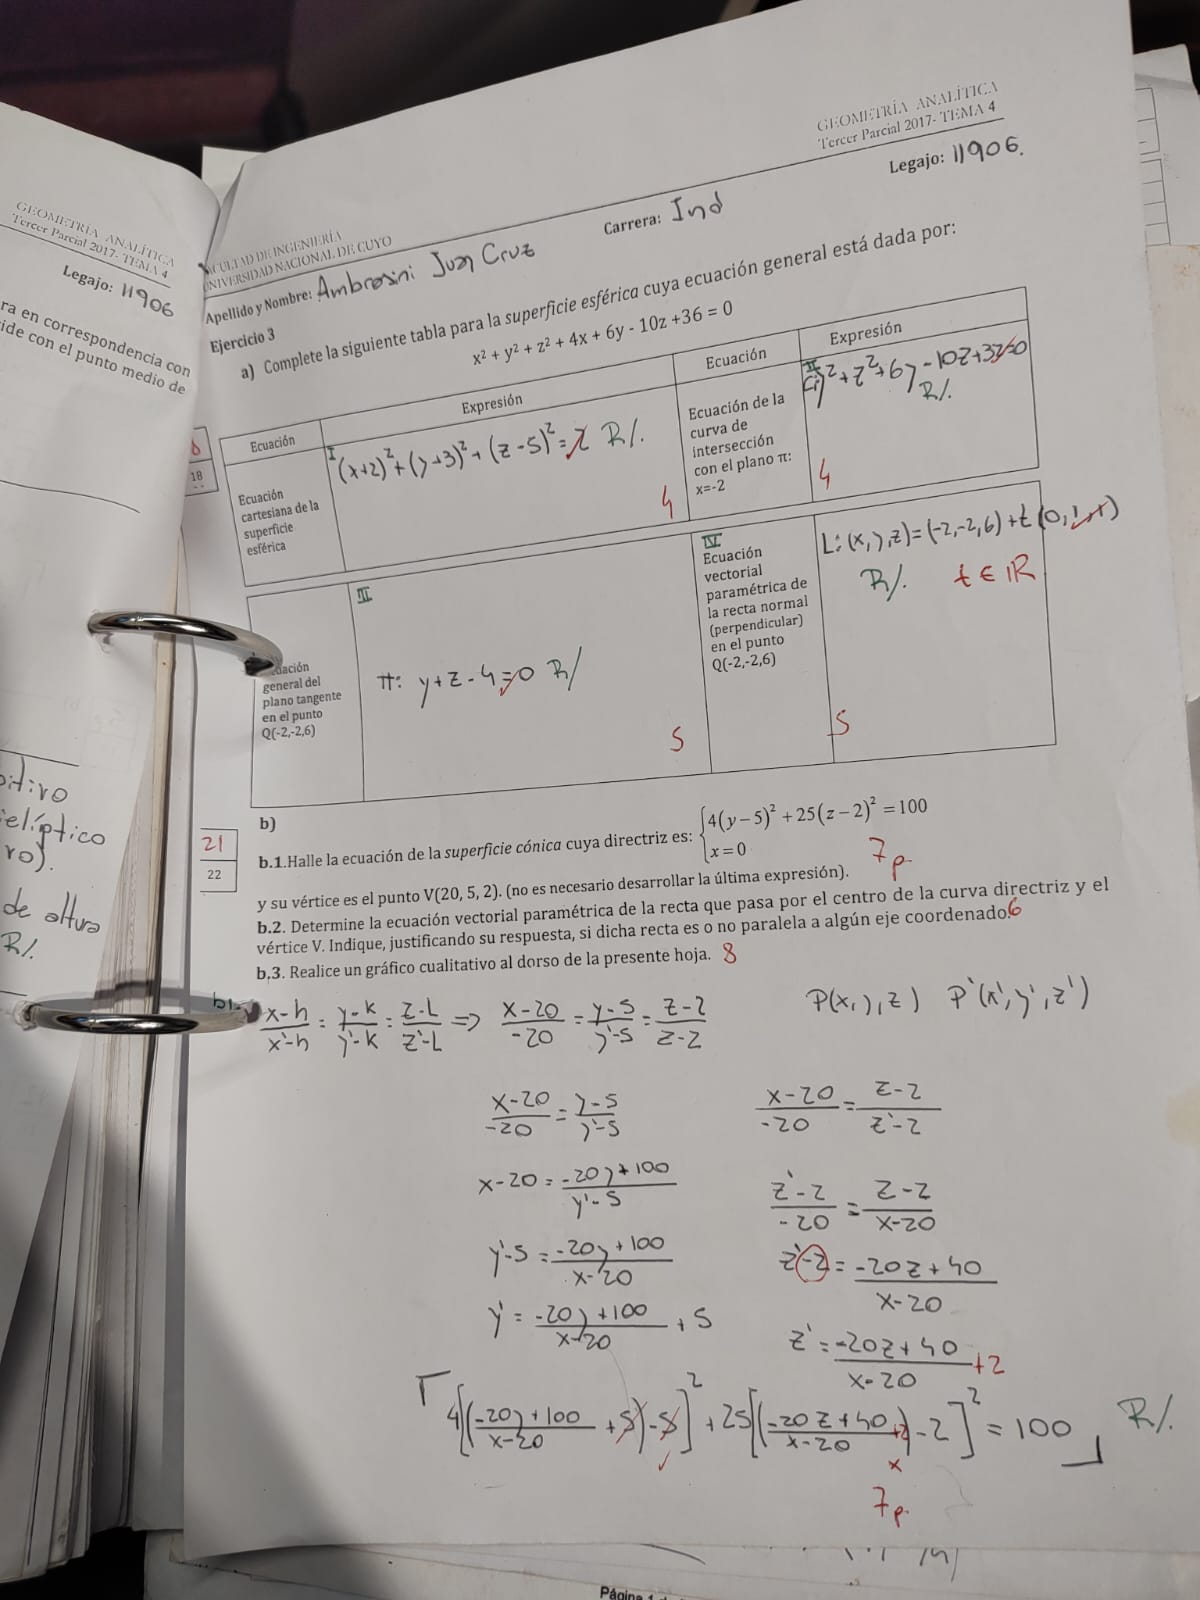 GEOMETRÍA ANALÍTICA
Tercer Parcial 2017- TEMA 4
Legajo: 11906
ra en correspondencia con
ide con el punto medio de
18
itivo
elíptico
ro).
de altura
R/.
GEOMETRÍA ANALÍTICA
Tercer Parcial 2017- TEMA 4
Legajo: 11906.
CULTAD DE INGENIERÍA
UNIVERSIDAD NACIONAL DE CUYO
Apellido y Nombre: Ambrosini Juan Cruz
Carrera: Ind
Ejercicio 3
a) Complete la siguiente tabla para la superficie esférica cuya ecuación general está dada por:
x² + y² + z² + 4x + 6y - 10z +36 = 0
Ecuación
Expresión
Ecuación
Expresión
Ecuación
cartesiana de la
superficie
esférica
I (x+2)² + (y+3)² + (z-5)² = 2 R/.
4
Ecuación de la
curva de
intersección
con el plano π:
x=-2
II
y² + z² + 6y - 10z + 32 = 0
R/.
4
uación
general del
plano tangente
en el punto
Q(-2,-2,6)
III
π: y + z - 4 = 0 R/
5
IV
Ecuación
vectorial
paramétrica de
la recta normal
(perpendicular)
en el punto
Q(-2,-2,6)
L: (x,y,z) = (-2,-2,6) + t (0,1,1)
R/. t ∈ IR
5
21
22
b)
b.1.Halle la ecuación de la superficie cónica cuya directriz es: {4(y-5)² + 25(z-2)² = 100
x = 0
7p
y su vértice es el punto V(20, 5, 2). (no es necesario desarrollar la última expresión).
b.2. Determine la ecuación vectorial paramétrica de la recta que pasa por el centro de la curva directriz y el
vértice V. Indique, justificando su respuesta, si dicha recta es o no paralela a algún eje coordenado. 6
b.3. Realice un gráfico cualitativo al dorso de la presente hoja. 8
b1 x-h/x'-h = y-k/y'-k = z-L/z'-L => x-20/-20 = y-5/y'-5 = z-2/z-2
P(x,y,z) P'(x',y',z')
x-20/-20 = y-5/y'-5
x-20/-20 = z-2/z'-2
x-20 = -20y+100/y'-5
z'-2/-20 = z-2/x-20
y'-5 = -20y+100/x-20
z'-2 = -20z+40/x-20
y' = -20y+100/x-20 + 5
z' = -20z+40/x-20 +2
4[(-20y+100/x-20 + 5) - 5]² + 25[(-20z+40/x-20 +2) - 2]² = 100 R/.
x
7p
Página 1